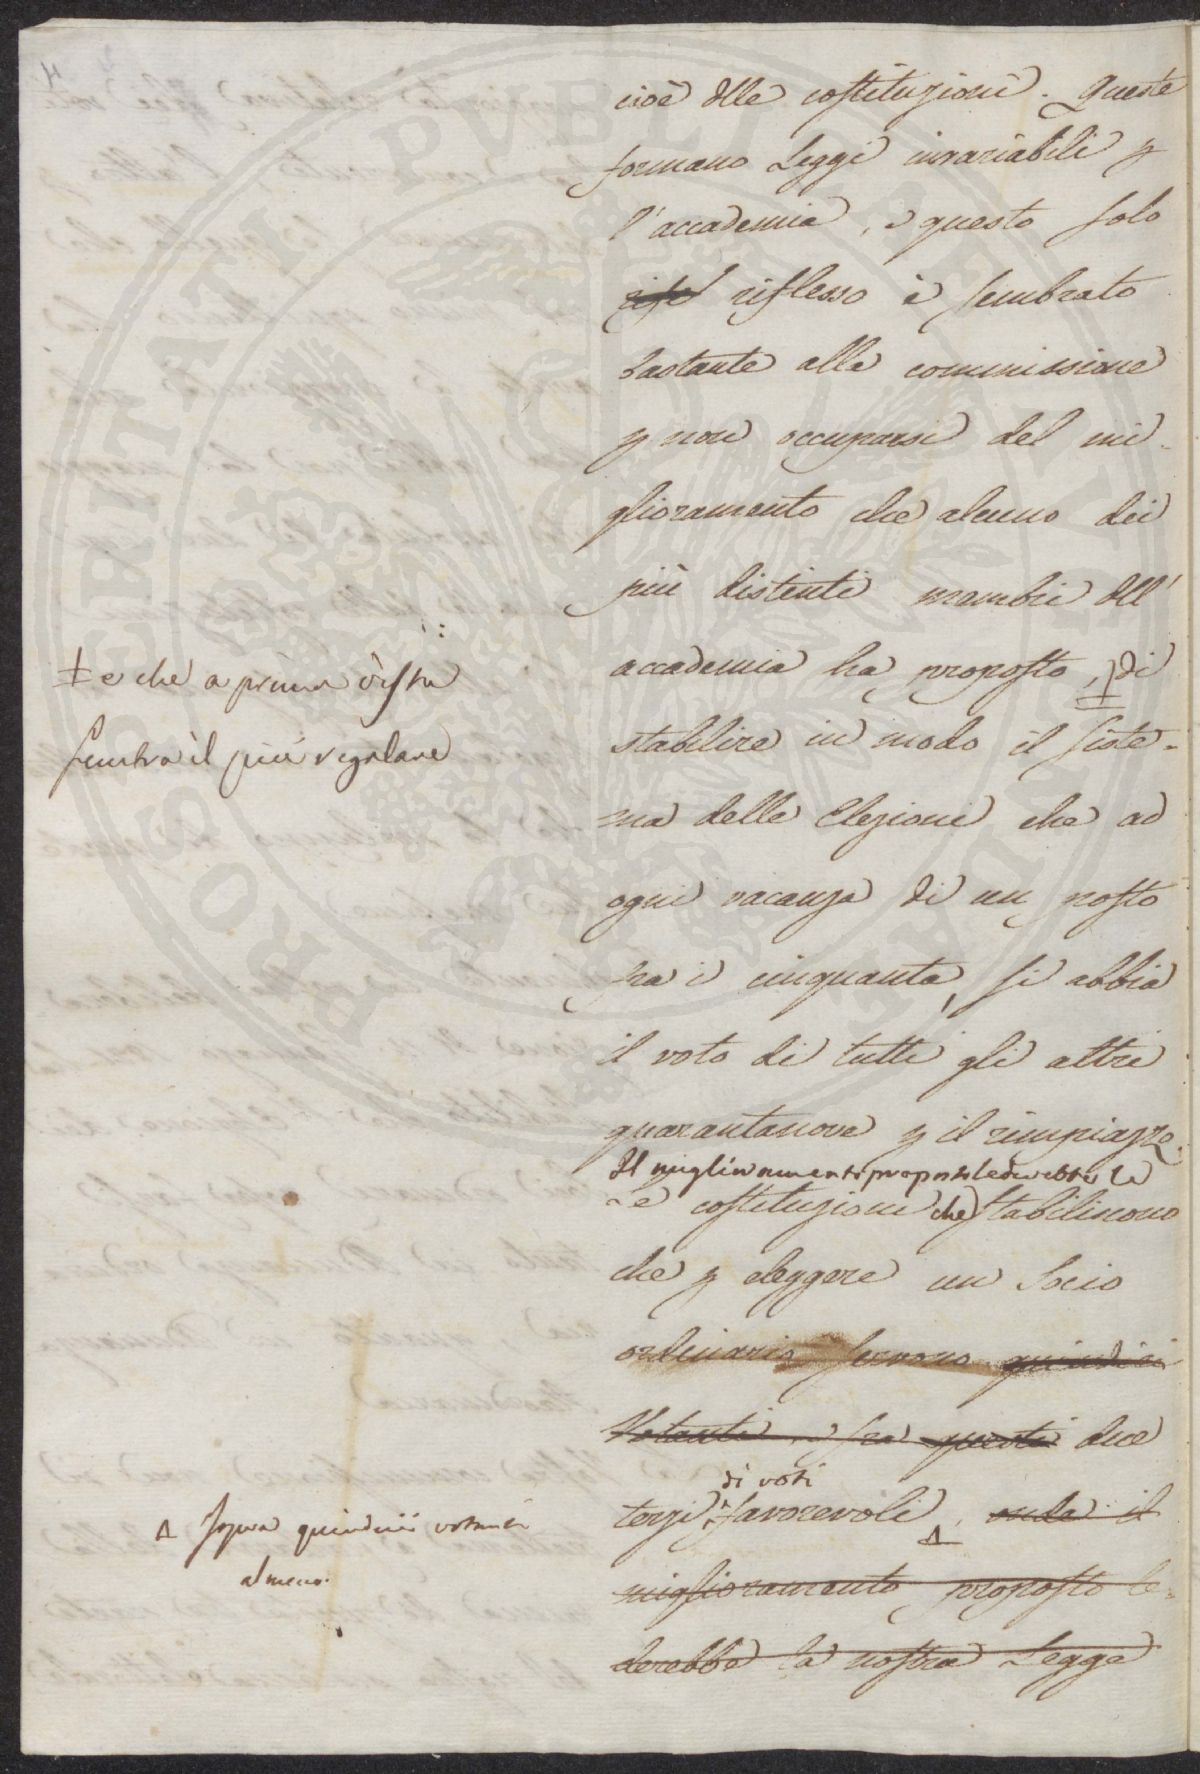 cioè dlle costituzioni. Queste
formano Leggi invariabili p
l'accademia, e questo solo
rifle riflesso è sembrato
bastante alla commissione
p non occuparsi del mi-
glioramento che alcuno dei
più distinti membri dll'
accademia ha proposto, ‡ di
‡ e che a prima vista
sembra il più regolare
stabilire in modo il siste-
ma delle Elezioni che ad
ogni vacanza di un posto
fra i cinquanta, si abbia
il voto di tutti gli altri
quarantanove p il rimpiazzo.
Il miglioramento proposto lederebbe le
Le costituzioni che stabiliscono
che p eleggere un Socio
ordinario servono quindici
Votanti, e fra questi due
di voti
terzi favorevoli Δ, onde il
Δ sopra quindici votanti
almeno.
miglioramento proposto le-
derebbe la nostra Legge
PROSPERITATI PUBLICAE